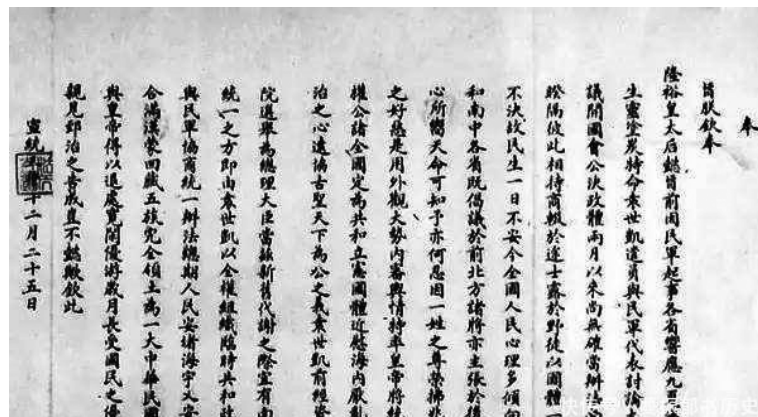 奉
旨朕欽奉
隆裕皇太后懿旨前因民軍起事各省響應九
生靈塗炭特命袁世凱遣員與民軍代表討論
議開國會公決政體兩月以來尚無確當辦
睽隔彼此相持商輟於途士露於野徒以國體
不決故民生一日不安今全國人民心理多傾向
和南中各省既倡議於前北方諸將亦主張於後
心所嚮天命可知予亦何忍因一姓之尊榮拂
之好惡是用外觀大勢內審輿情特率皇帝將
權公諸全國定為共和立憲國體近慰海內厭亂
治之心遠協古聖天下為公之義袁世凱前經資
院選舉為總理大臣當茲新舊代謝之際宜有南
統一之方即由袁世凱以全權組織臨時共和
與民軍協商統一辦法總期人民安堵海宇乂安
合滿漢蒙回藏五族完全領土為一大中華民國
與皇帝得以退處寬閒優游歲月長受國民之優
親見郅治之告成豈不懿歟欽此
宣統十二月二十五日